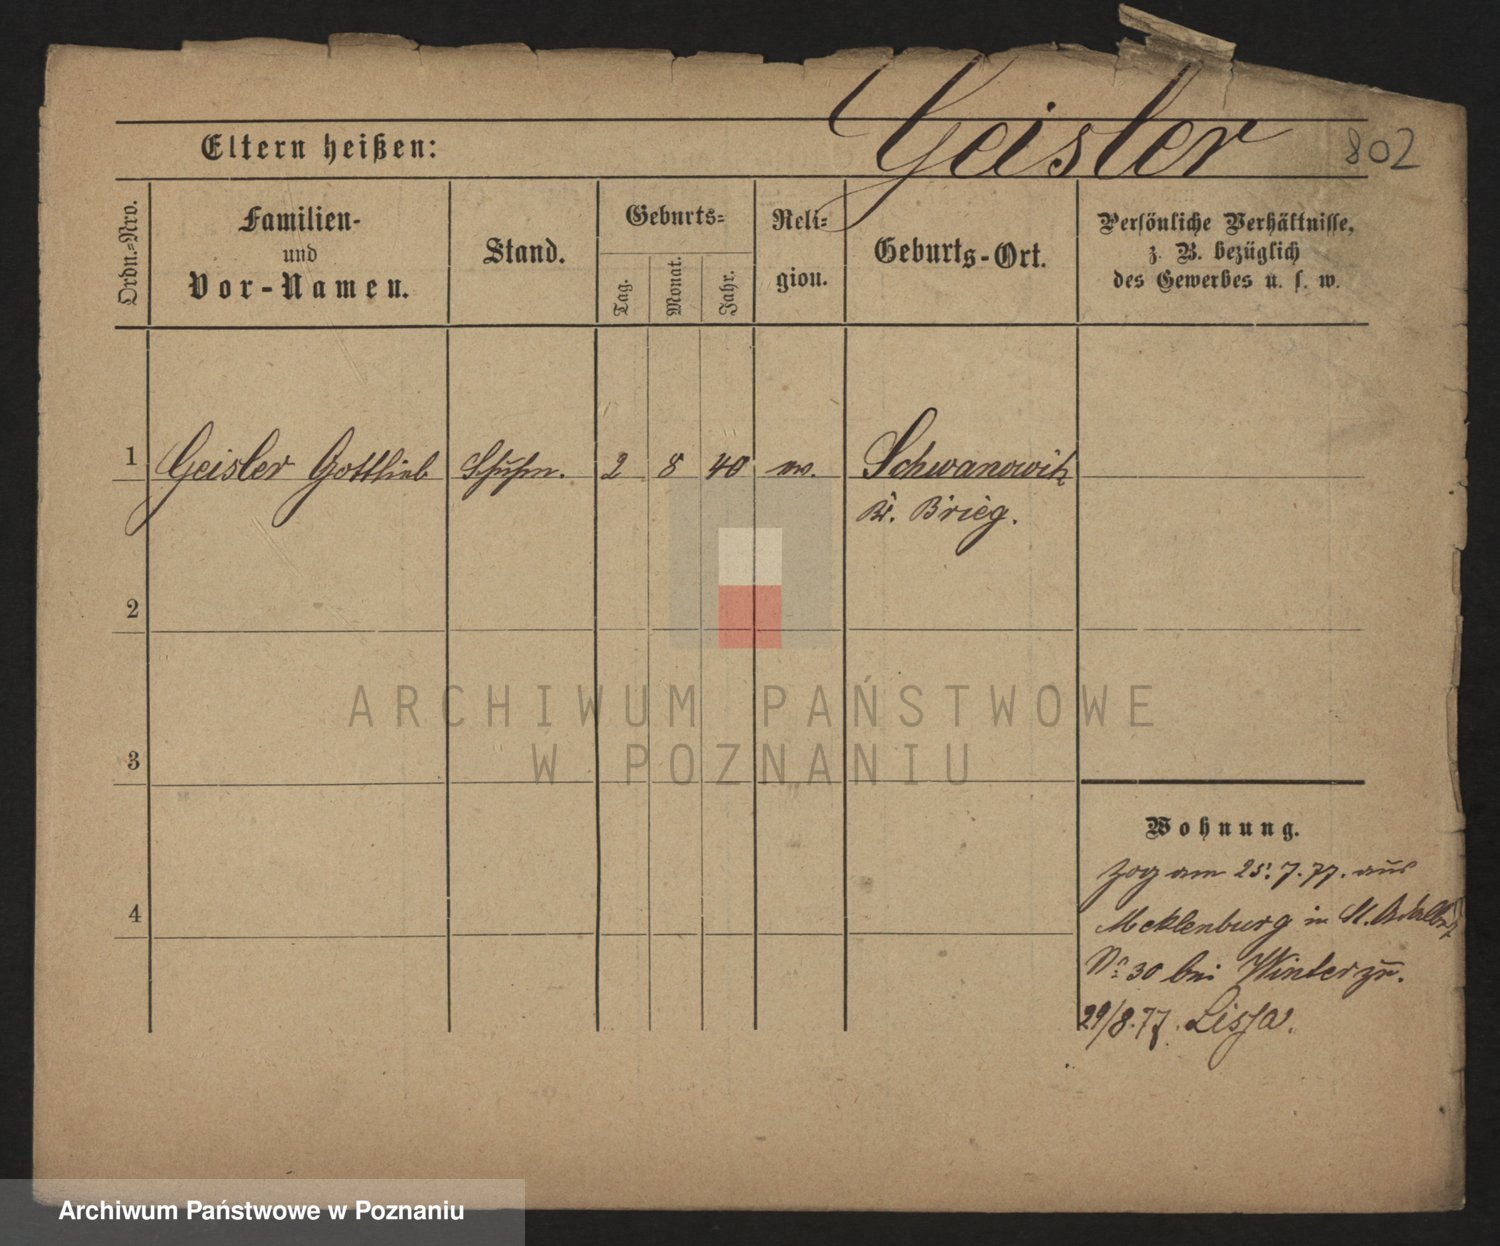 Geisler
802
Eltern heißen:
Ordn.-Nro.
Familien-
und
Vor-Namen.
Stand.
Geburts-
Tag.
Monat.
Jahr.
Reli-
gion.
Geburts-Ort.
Persönliche Verhältnisse,
z. B. bezüglich
des Gewerbes u. s. w.
1 Geisler Gottlieb Schuhm. 2 8 40 ev. Schwanowitz
Kr. Brieg.
2
3
4
Wohnung.
Zog am 25. 7. 77. aus
Mecklenburg in St. Adalbertstr
No 30 bei Winter zu.
29/8.77. Lissa.
ARCHIWUM PAŃSTWOWE
W POZNANIU
Archiwum Państwowe w Poznaniu